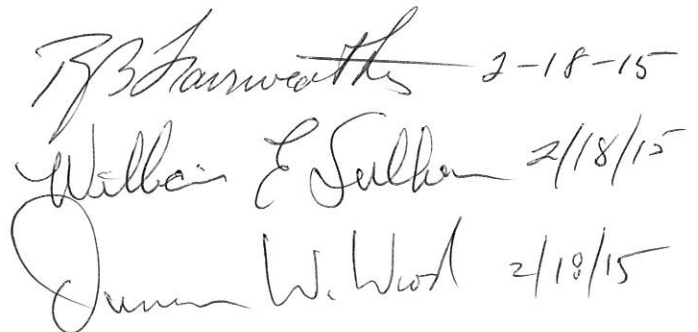 RB Fairweather 2-18-15
William E Sullivan 2/18/15
W. Wood 2/18/15